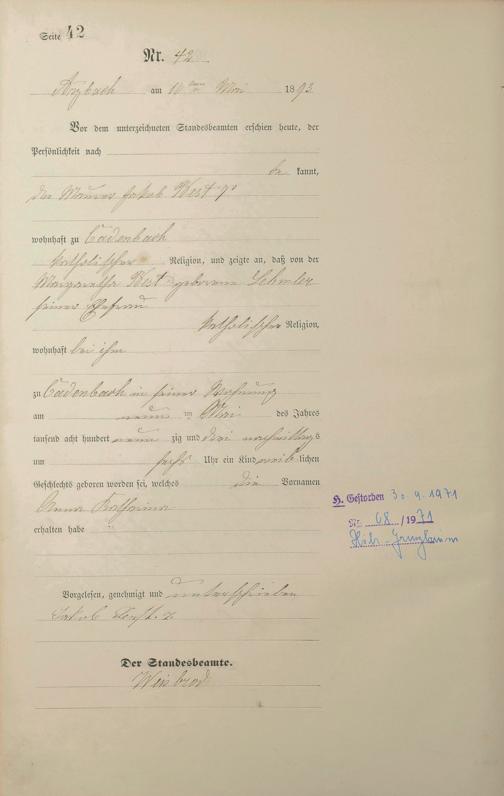 Seite 42
Nr. 42
Arzbach am 10ten Mai 1893
Vor dem unterzeichneten Standesbeamten erschien heute, der
Persönlichkeit nach
be kannt,
der Maurer Jakob West
wohnhaft zu Cadenbach
katholischer Religion, und zeigte an, daß von der
Margaretha West geborene
seiner Ehefrau
katholischer Religion,
wohnhaft bei ihm
zu Cadenbach in seiner Wohnung
am neun ten Mai des Jahres
tausend acht hundert neun zig und drei nachmittags
um sechs Uhr ein Kind weib lichen
Geschlechts geboren worden sei, welches die Vornamen
Anna Katharina
erhalten habe
Vorgelesen, genehmigt und unterschrieben
Jakob
Der Standesbeamte.
Weisbrod
H. Gestorben 30.9.1971
Nr. 68/1971